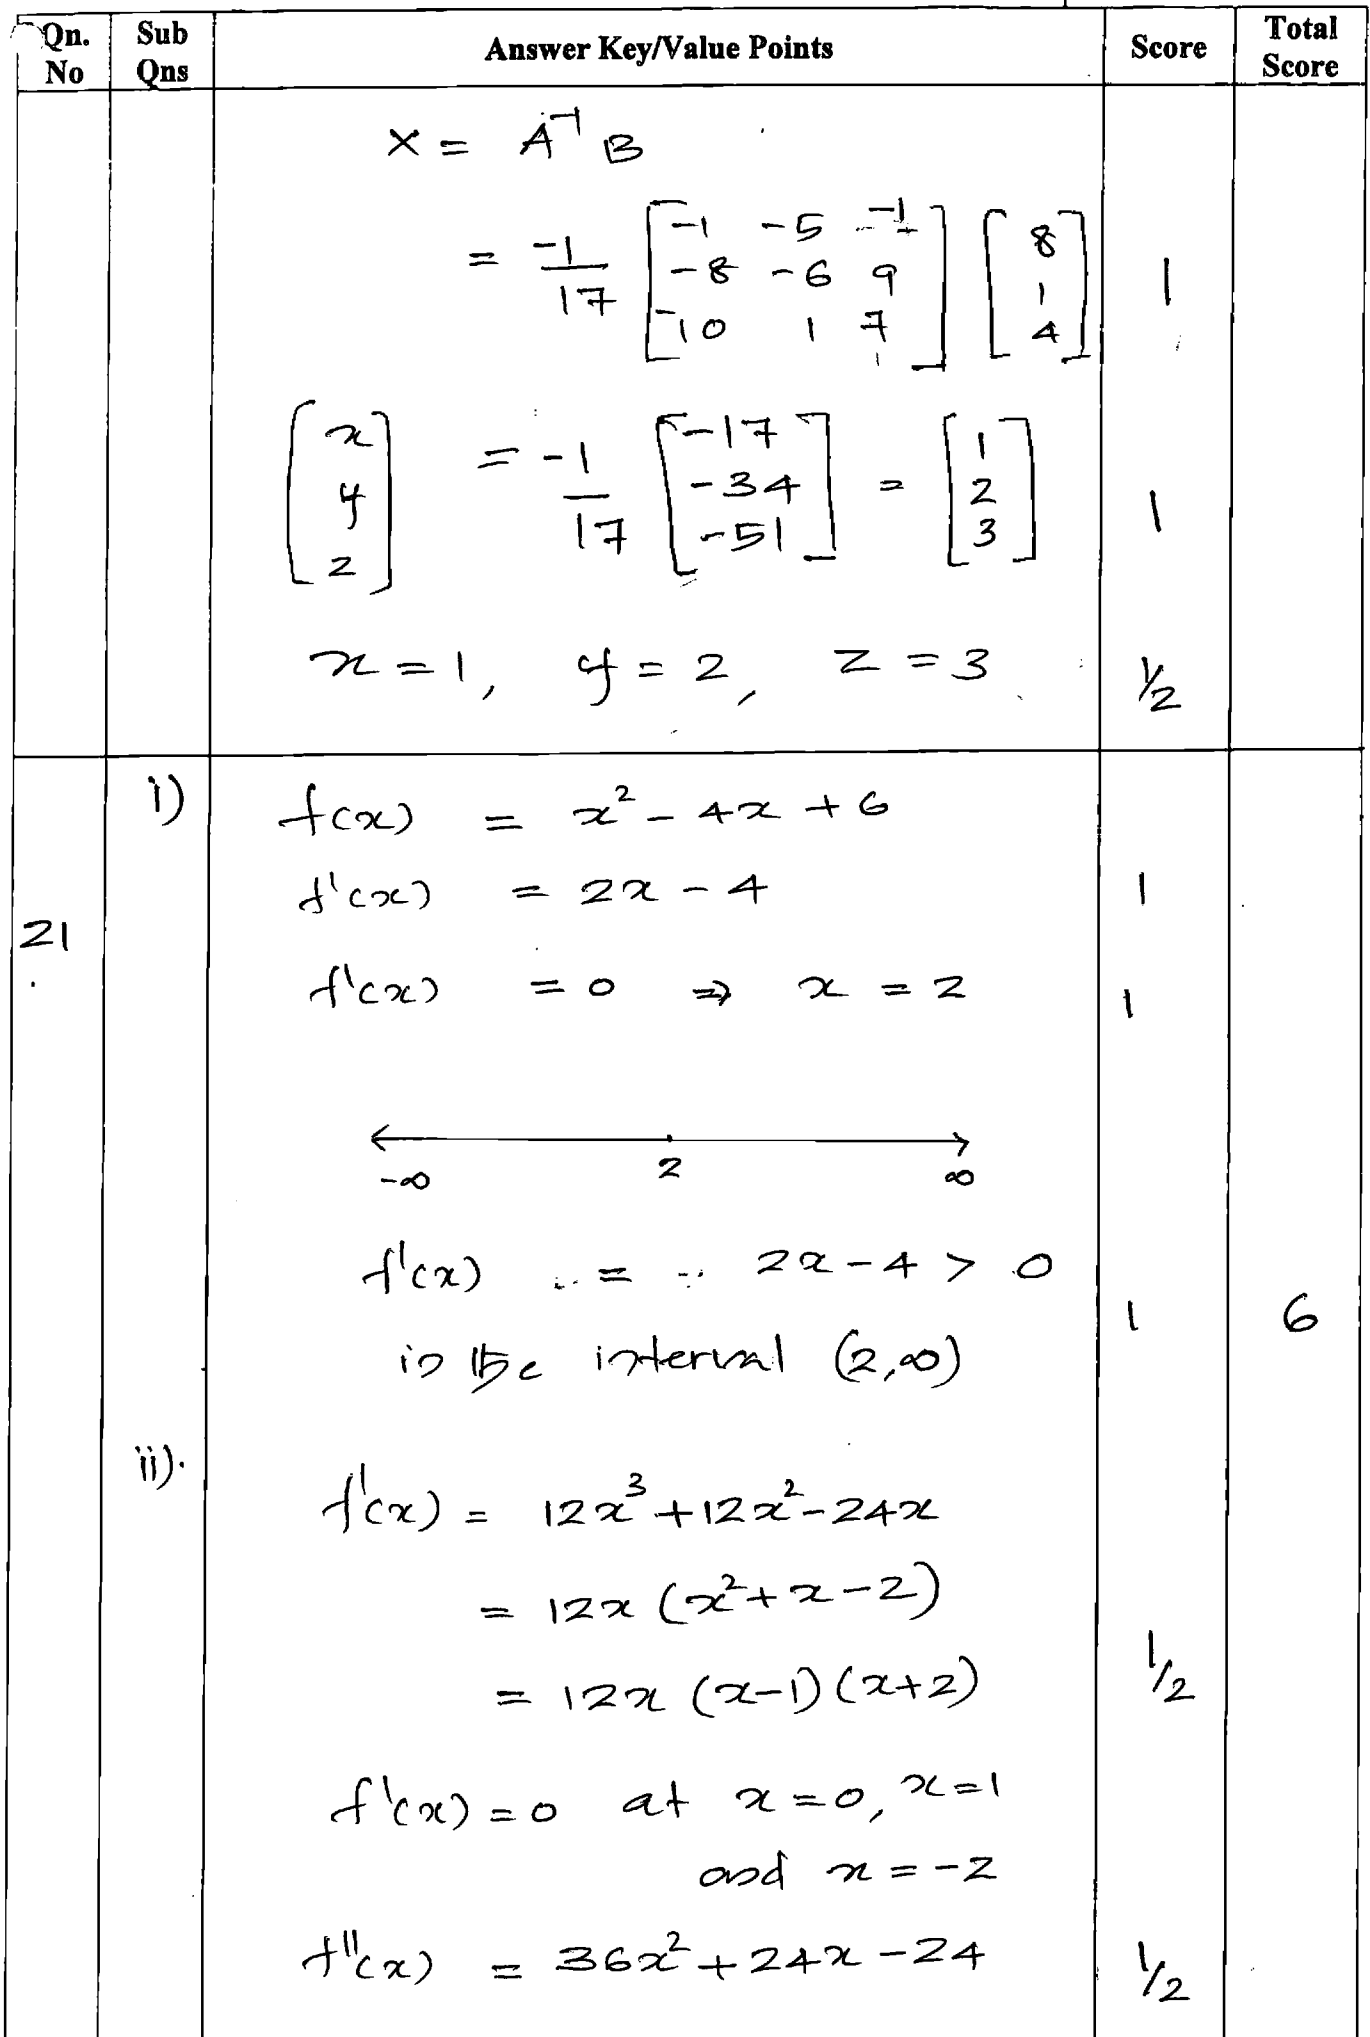 Qn. No | Sub Qns | Answer Key/Value Points | Score | Total Score
X = A⁻¹ B
= -1/17 [-1 -5 -1; -8 -6 9; -10 1 7] [8; 1; 4] 1
[x; y; z] = -1/17 [-17; -34; -51] = [1; 2; 3] 1
x = 1, y = 2, z = 3 ½
i) f(x) = x² - 4x + 6
f'(x) = 2x - 4 1
21
f'(x) = 0 ⇒ x = 2 1
-∞ 2 ∞
f'(x) = 2x - 4 > 0
in the interval (2,∞) 1 6
ii).
f'(x) = 12x³ + 12x² - 24x
= 12x (x² + x - 2)
= 12x (x-1) (x+2) ½
f'(x) = 0 at x = 0, x = 1
and x = -2
f''(x) = 36x² + 24x - 24 ½